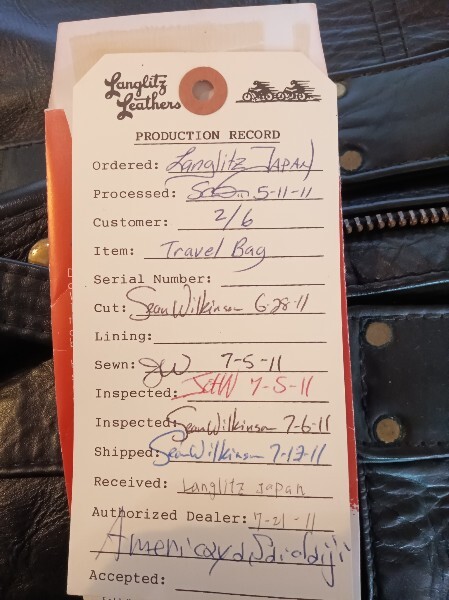 Langlitz
Leathers
PRODUCTION RECORD
Ordered: Langlitz JAPAN
Processed: 5-11-11
Customer: 2/6
Item: Travel Bag
Serial Number:
Cut: Sean Wilkinson 6-28-11
Lining:
Sewn: JW 7-5-11
Inspected: 7-5-11
Inspected: Sean Wilkinson 7-6-11
Shipped: Sean Wilkinson 7-12-11
Received: Langlitz Japan
Authorized Dealer: 7-21-11
Accepted: